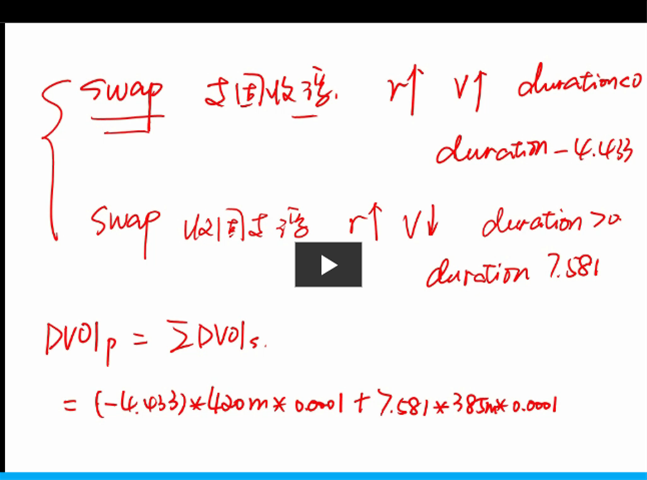 swap 支固收浮. r↑ V↑ duration<0
duration -4.433
swap 收固支浮 r↑ V↓ duration>0
duration 7.581
DV01p = ΣDV01s.
= (-4.433)*420m*0.0001+7.581*385m*0.0001